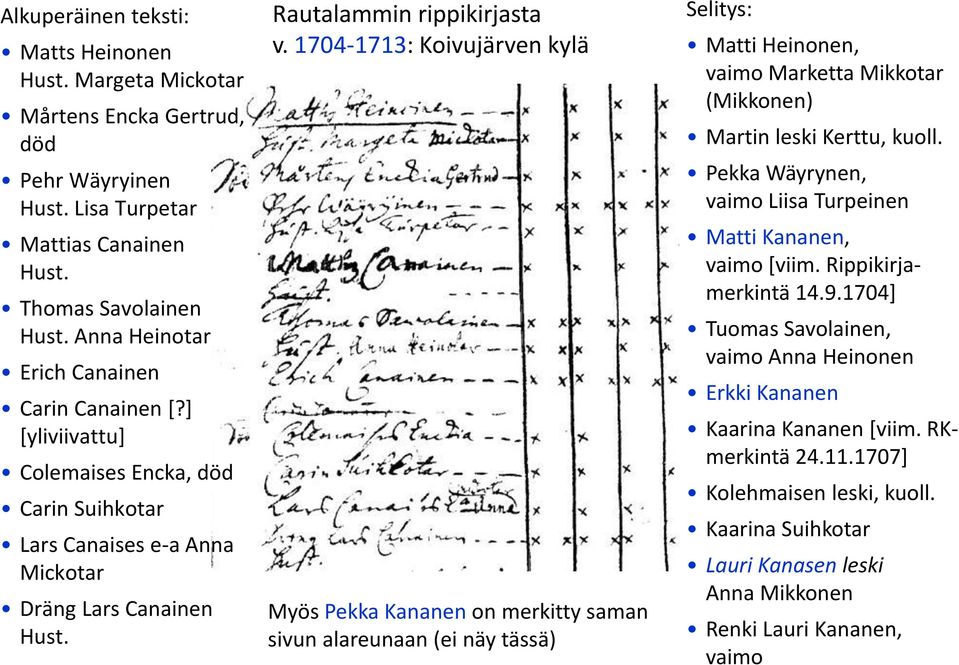 Alkuperäinen teksti:
• Matts Heinonen
Hust. Margeta Mickotar
• Mårtens Encka Gertrud,
död
• Pehr Wäyryinen
Hust. Lisa Turpetar
• Mattias Canainen
Hust.
• Thomas Savolainen
Hust. Anna Heinotar
• Erich Canainen
• Carin Canainen [?]
[yliviivattu]
• Colemaises Encka, död
• Carin Suihkotar
• Lars Canaises e-a Anna
Mickotar
• Dräng Lars Canainen
Hust.
Rautalammin rippikirjasta
v. 1704-1713: Koivujärven kylä
Matthz Heinoinen
Hust. Margeta Mickotar
Död Mårtens Enckia Gertrud
Pehr Wäyrÿinen
Hust. Lisa Turpetar
Matthz Canainen
Hust.
Thomas Savolainen
Hust. Anna Heinotar
Erich Canainen
Död Colemaises Enckia
Carin Suihkotar
Lars Canaises Anna
Dreng Lars Canainen
Hust.
Myös Pekka Kananen on merkitty saman
sivun alareunaan (ei näy tässä)
Selitys:
• Matti Heinonen,
vaimo Marketta Mikkotar
(Mikkonen)
• Martin leski Kerttu, kuoll.
• Pekka Wäyrynen,
vaimo Liisa Turpeinen
• Matti Kananen,
vaimo [viim. Rippikirja-
merkintä 14.9.1704]
• Tuomas Savolainen,
vaimo Anna Heinonen
• Erkki Kananen
• Kaarina Kananen [viim. RK-
merkintä 24.11.1707]
• Kolehmaisen leski, kuoll.
• Kaarina Suihkotar
• Lauri Kanasen leski
Anna Mikkonen
• Renki Lauri Kananen,
vaimo